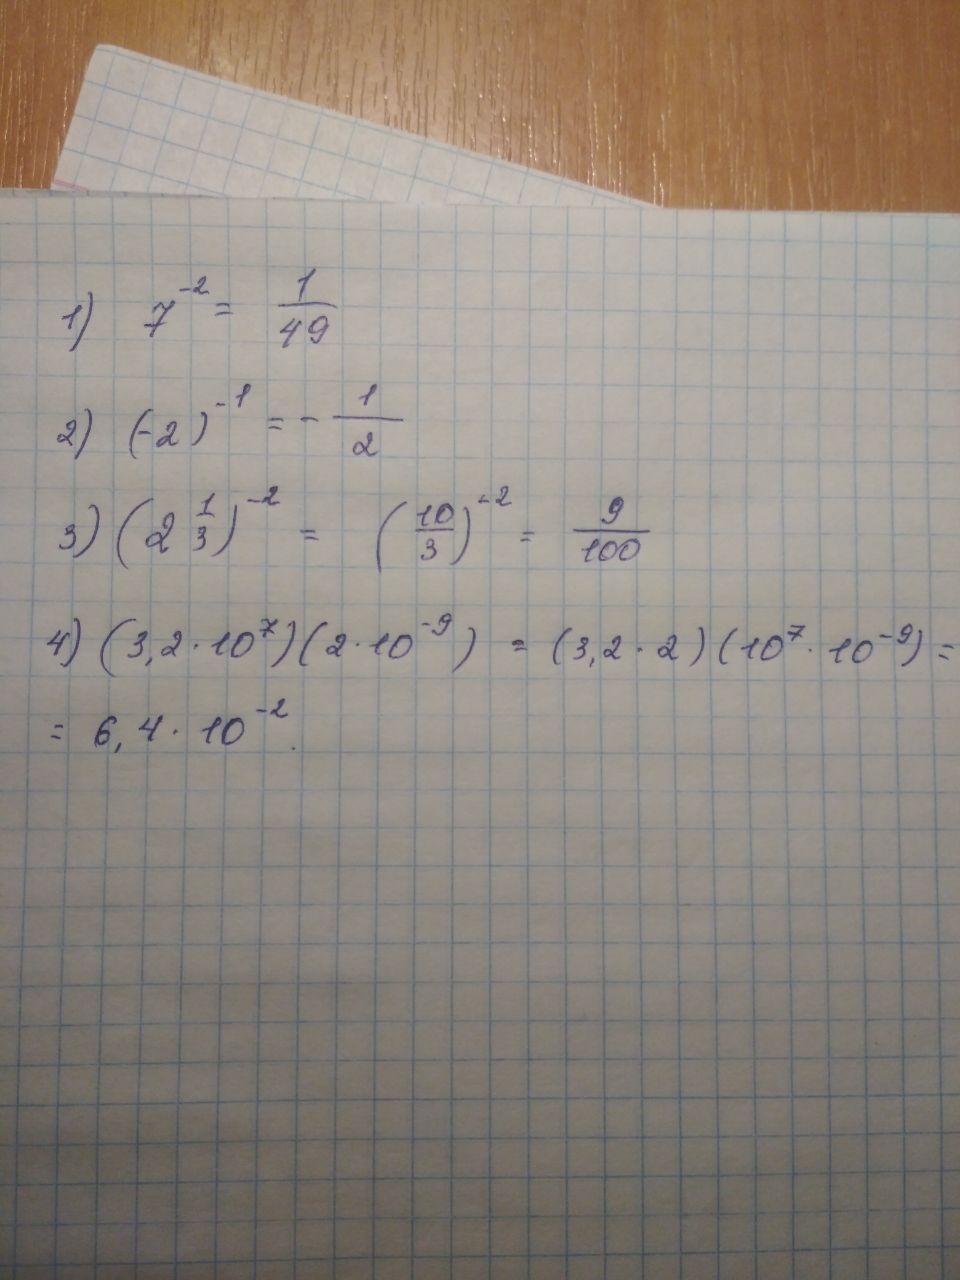 1) 7⁻² = 1/49
2) (-2)⁻¹ = - 1/2
3) (2 1/3)⁻² = (10/3)⁻² = 9/100
4) (3,2 · 10⁷)(2 · 10⁻⁹) = (3,2 · 2)(10⁷ · 10⁻⁹) =
= 6,4 · 10⁻².